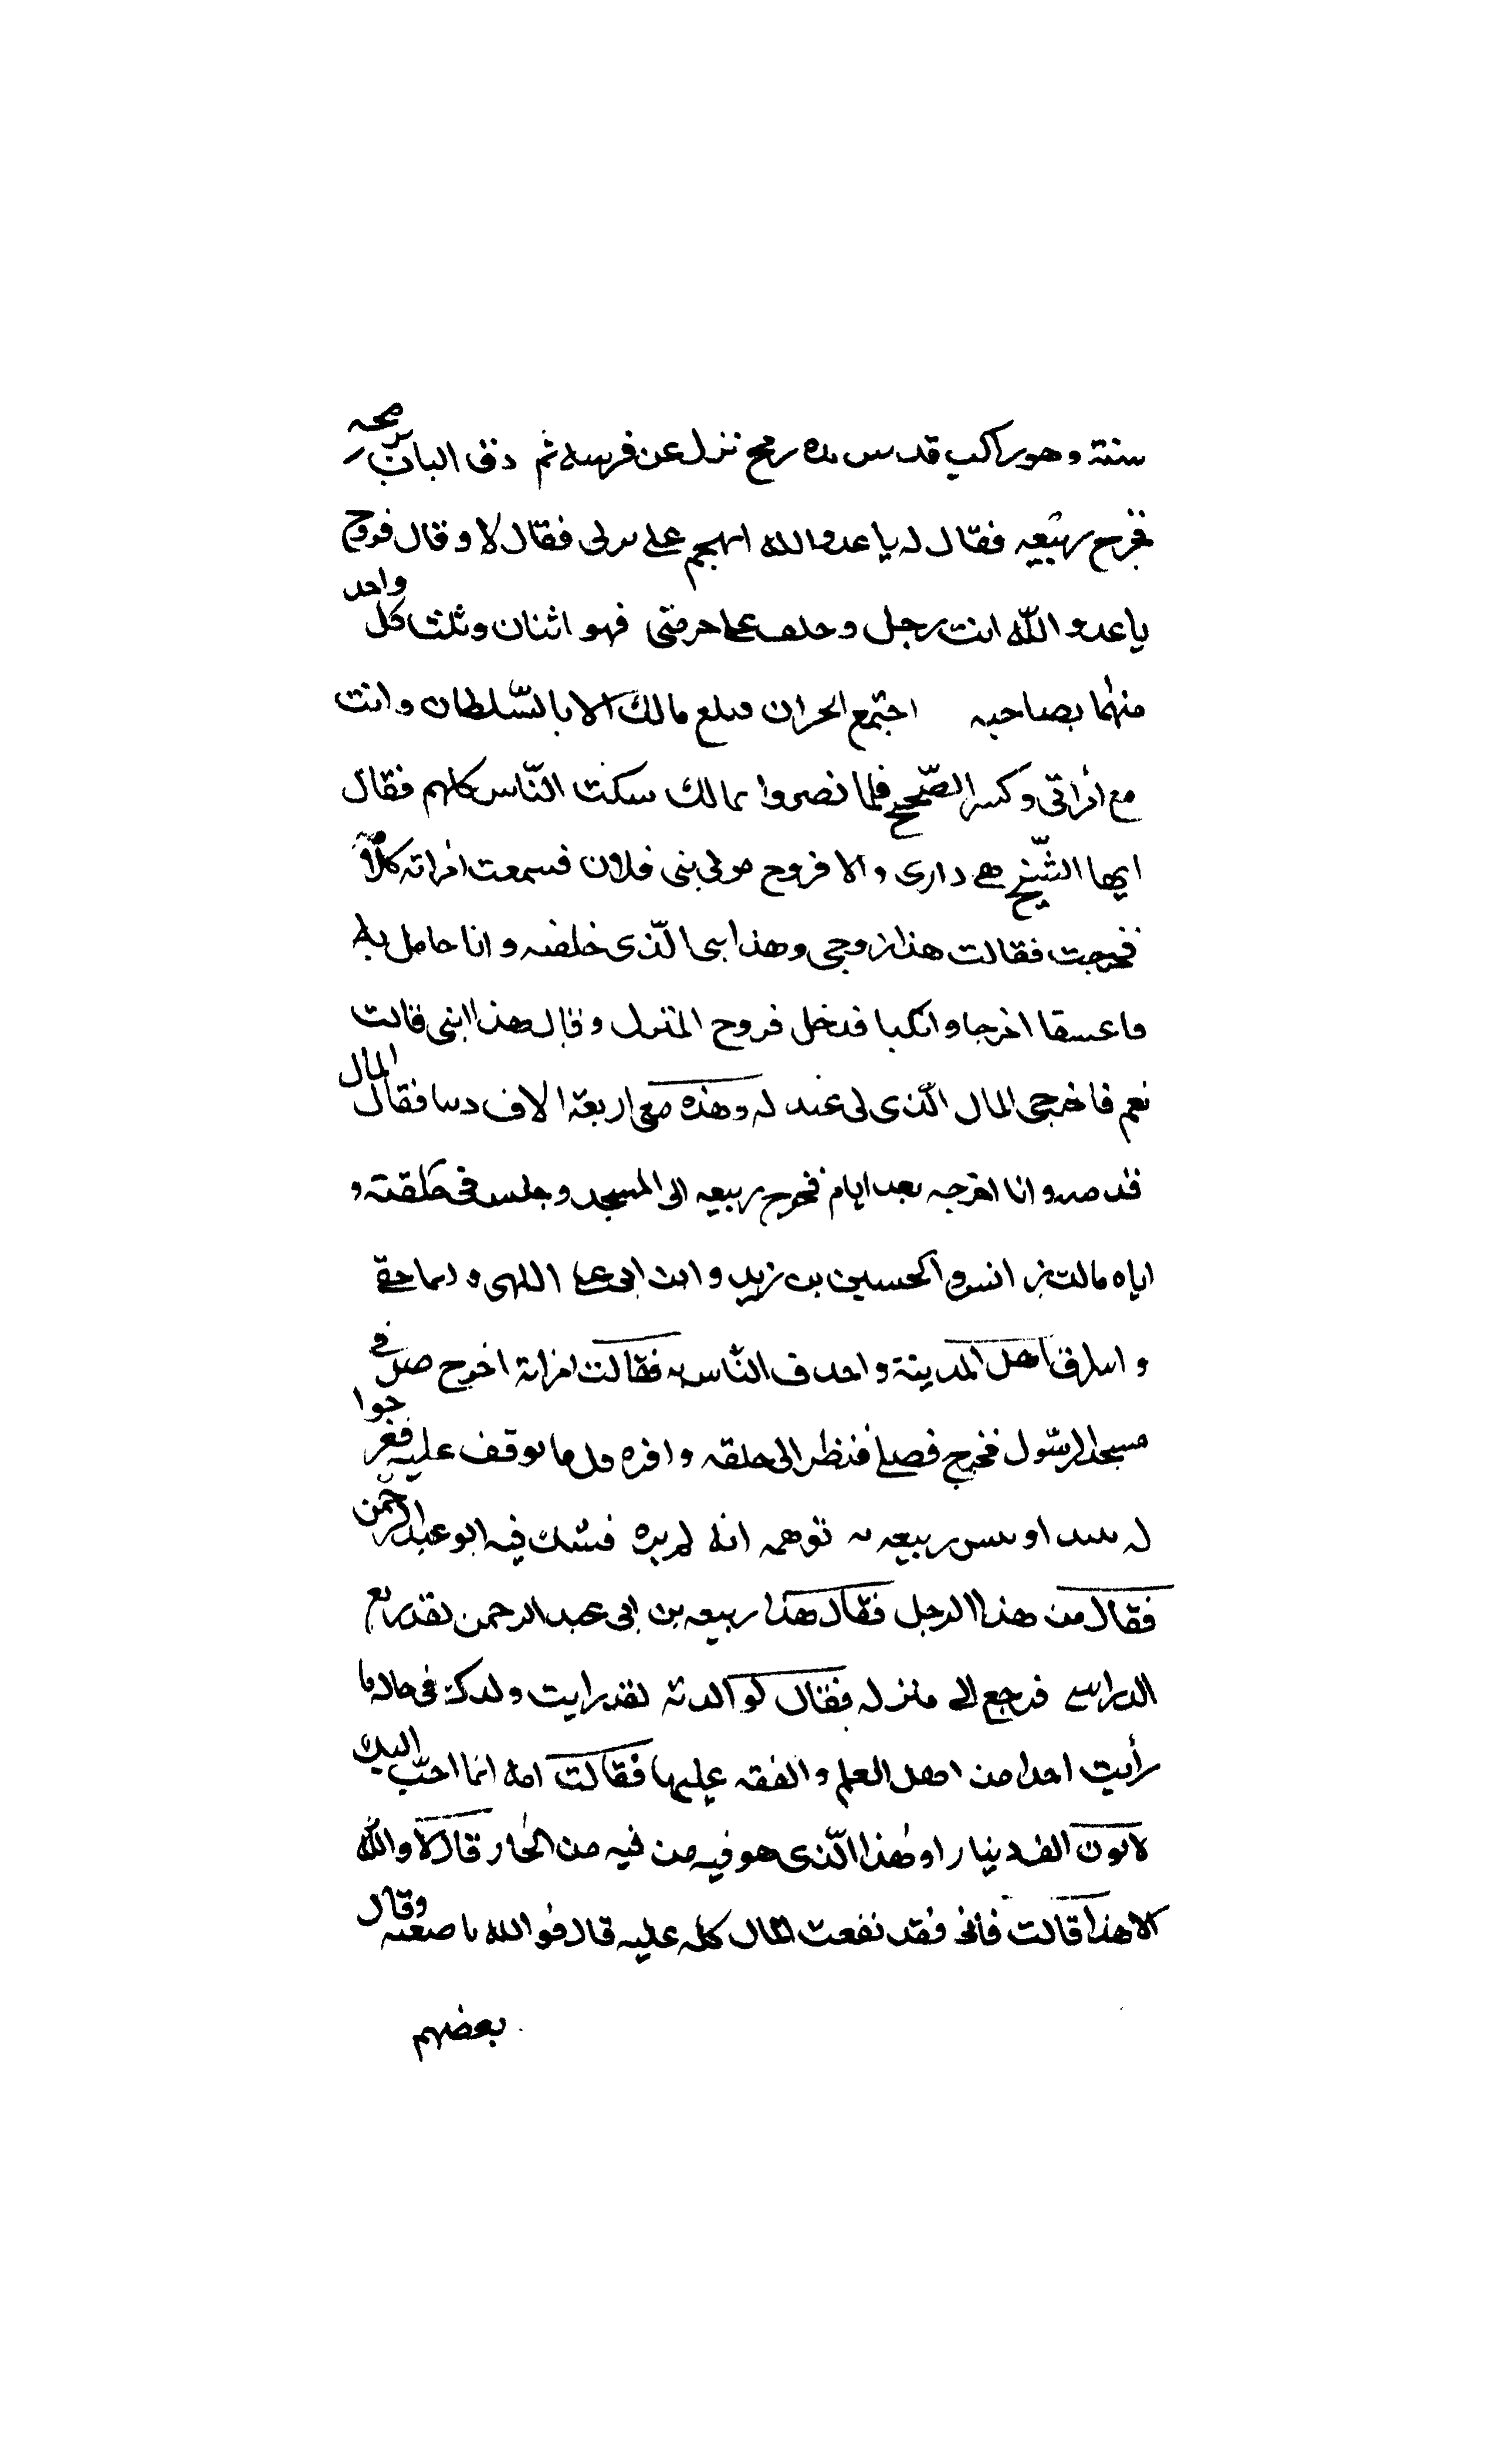 سنة وهو راكب قد سں ىده رمح نزل عن فرسه ثم دق الباب برمحه
فخرج ربيعه فقال له يا عدو الله اتهجم على مرلى فقال لا وقال فروح
يا عدو الله انت رجل وحلف على حرمتى فهو اثنان وثلث كل واحد
منهما بصاحبه اجتمع الحران فبلغ مالك الا بالسّلطان وانت
مع امراتى وكسر الصّحيح فلما نصروا بمالك سكت النّاس كلهم فقال
ايها الشّيخ هى دارى والا فروح مولى بنى فلان فسمعت امراته كلامه
فخرجت فقالت هذا زوجى وهذا ابنى الّذى خلفنه وانا حامل به
فاعتنقا اخرجا وانكبا فدخل فروح المنزل وقال هذا ابنى قالت
نعم فاخرجى المال الّذى لى عند له وهذه معى اربعة الاف دينا فقال المال
قد صرو انا اخرجه بعد ايام فخرج ربيعه الى المسجد وجلس فى حلقته و
اياه مالك بن انس والحسين بن زيد وابن ابى على اللهى و
واسراق اهل المدينة واحدف النّاس به فقالت امراتة اخرج صل فى
مسجد الرسّول فخرج فصلى فنظر الى حلقه وافره فوقف عليه ففرجوا
له ربيعه توهمه انه لم يره فشك فيه ابو عبد الرحمن
فقال من هذا الرجل فقال هذا ربيعه بن ابى عبد الرحمن لقد رفع
فرجع الى منزله فقال لوالدته لقد رايت ولدك فى حاله ما
رأيت احدا من اهل العلم والفقه عليها فقالت امه انما احبّ اليك
الف دينار او هذا الّذى هو فيه من فيه من الجار قال لا والله
الا هذا قالت فانى فقد نفعت المال كله عليه قال فو الله ما صنعته وقال
بعضهم